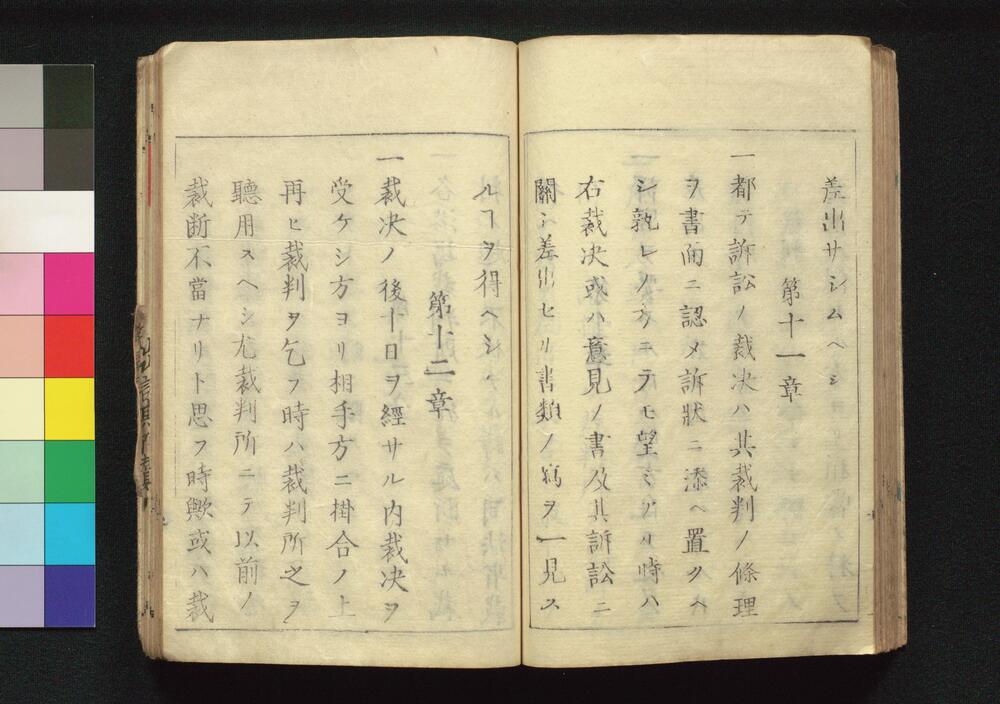 差出サシムヘシ
第十一章
一都テ訴訟ノ裁决ハ其裁判ノ條理
ヲ書面ニ認メ訴狀ニ添ヘ置クヘ
シ孰レノ方ニテモ望ミアル時ハ
右裁决或ハ意見ノ書及其訴訟ニ
關シ差出セル書類ノ寫ヲ一見ス
ルヿヲ得ヘシ
第十二章
一裁决ノ後十日ヲ經サル内裁决ヲ
受ケシ方ヨリ相手方ニ掛合ノ上
再ヒ裁判ヲ乞フ時ハ裁判所之ヲ
聽用スヘシ尤裁判所ニテ以前ノ
裁断不當ナリト思フ時歟或ハ裁